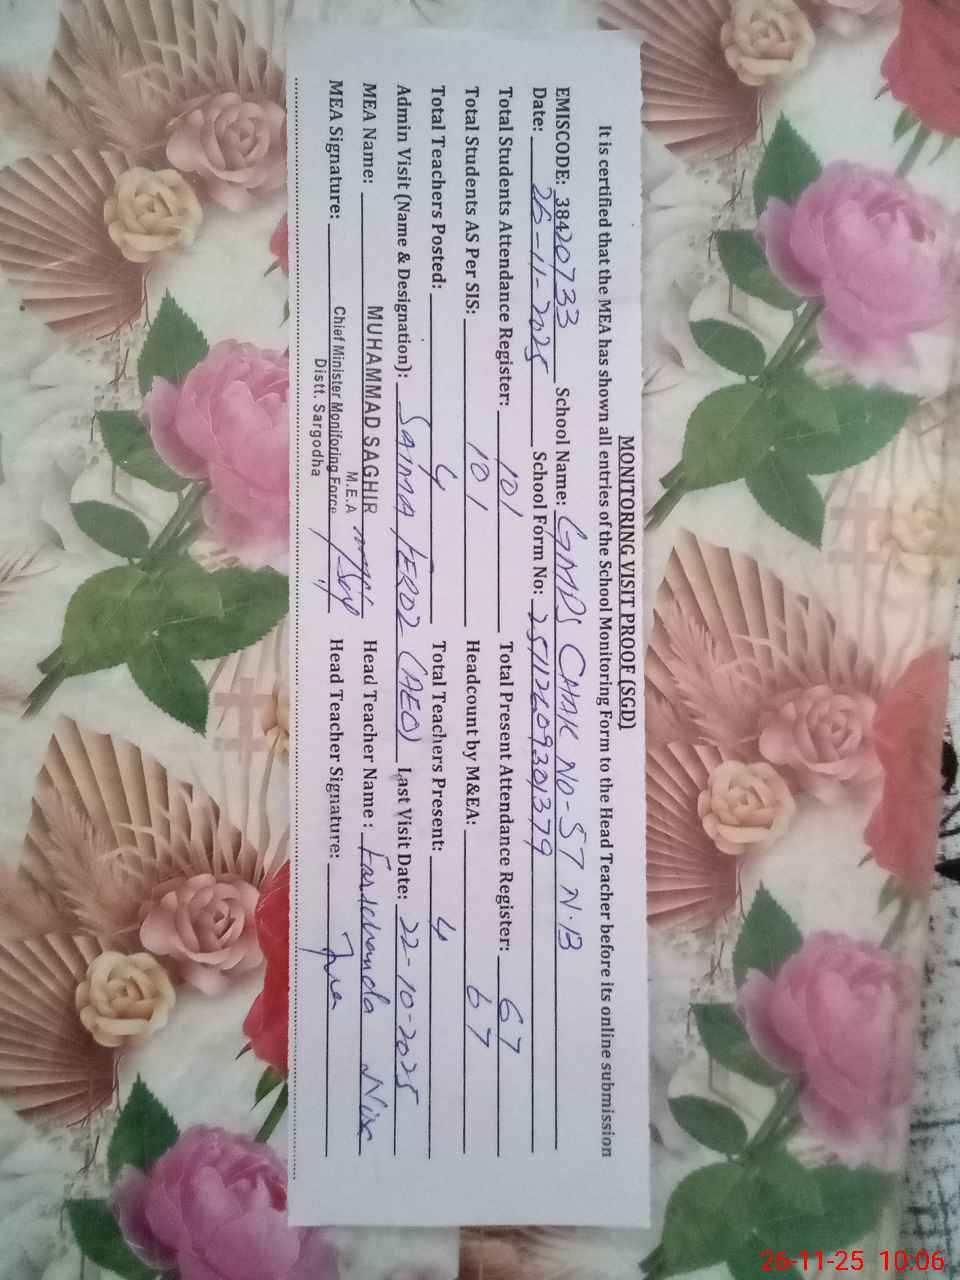 MONITORING VISIT PROOF (SGD)
It is certified that the MEA has shown all entries of the School Monitoring Form to the Head Teacher before its online submission
EMISCODE: 38420733 School Name: GMPS CHAK No-57 N.B
Date: 26-11-2025 School Form No: 25112609301379
Total Students Attendance Register: 101 Total Present Attendance Register: 67
Total Students AS Per SIS: 101 Headcount by M&EA: 67
Total Teachers Posted: 4 Total Teachers Present: 4
Admin Visit (Name & Designation): SAIMA FEROZ (AEO) Last Visit Date: 22-10-2025
MEA Name: MUHAMMAD SAGHIR Head Teacher Name :
M.E.A
MEA Signature: Chief Minister Monitoring Force Head Teacher Signature:
Distt. Sargodha
26-11-25 10:06